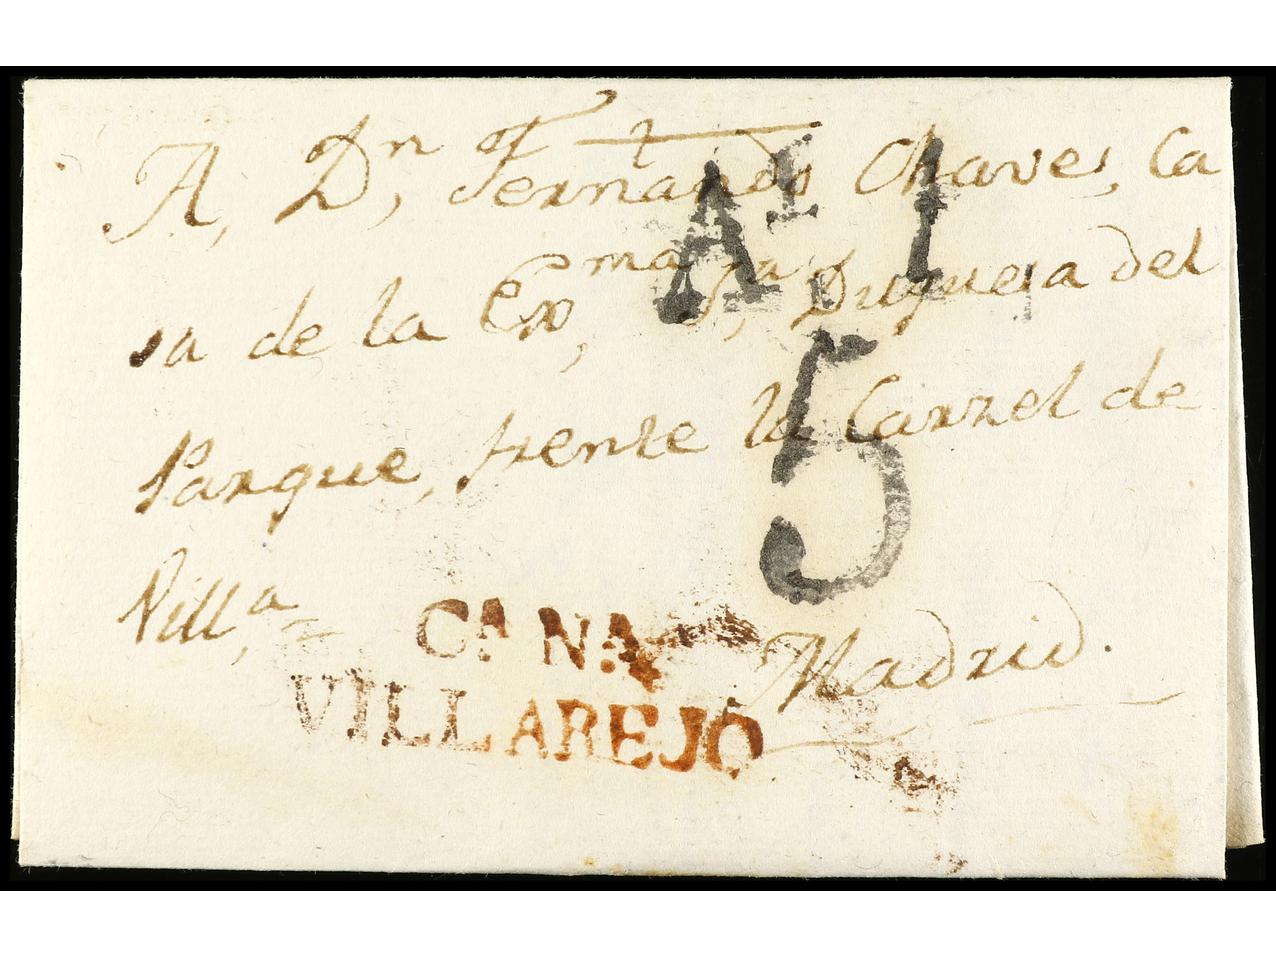 A, Dn, Fernando Chaves, Ca
sa de la Exma, Sra, Duquesa del
Parque, frente la Carzel de
Villa,
Madrid.
Ar. 1
5
CA NA
VILLAREJO